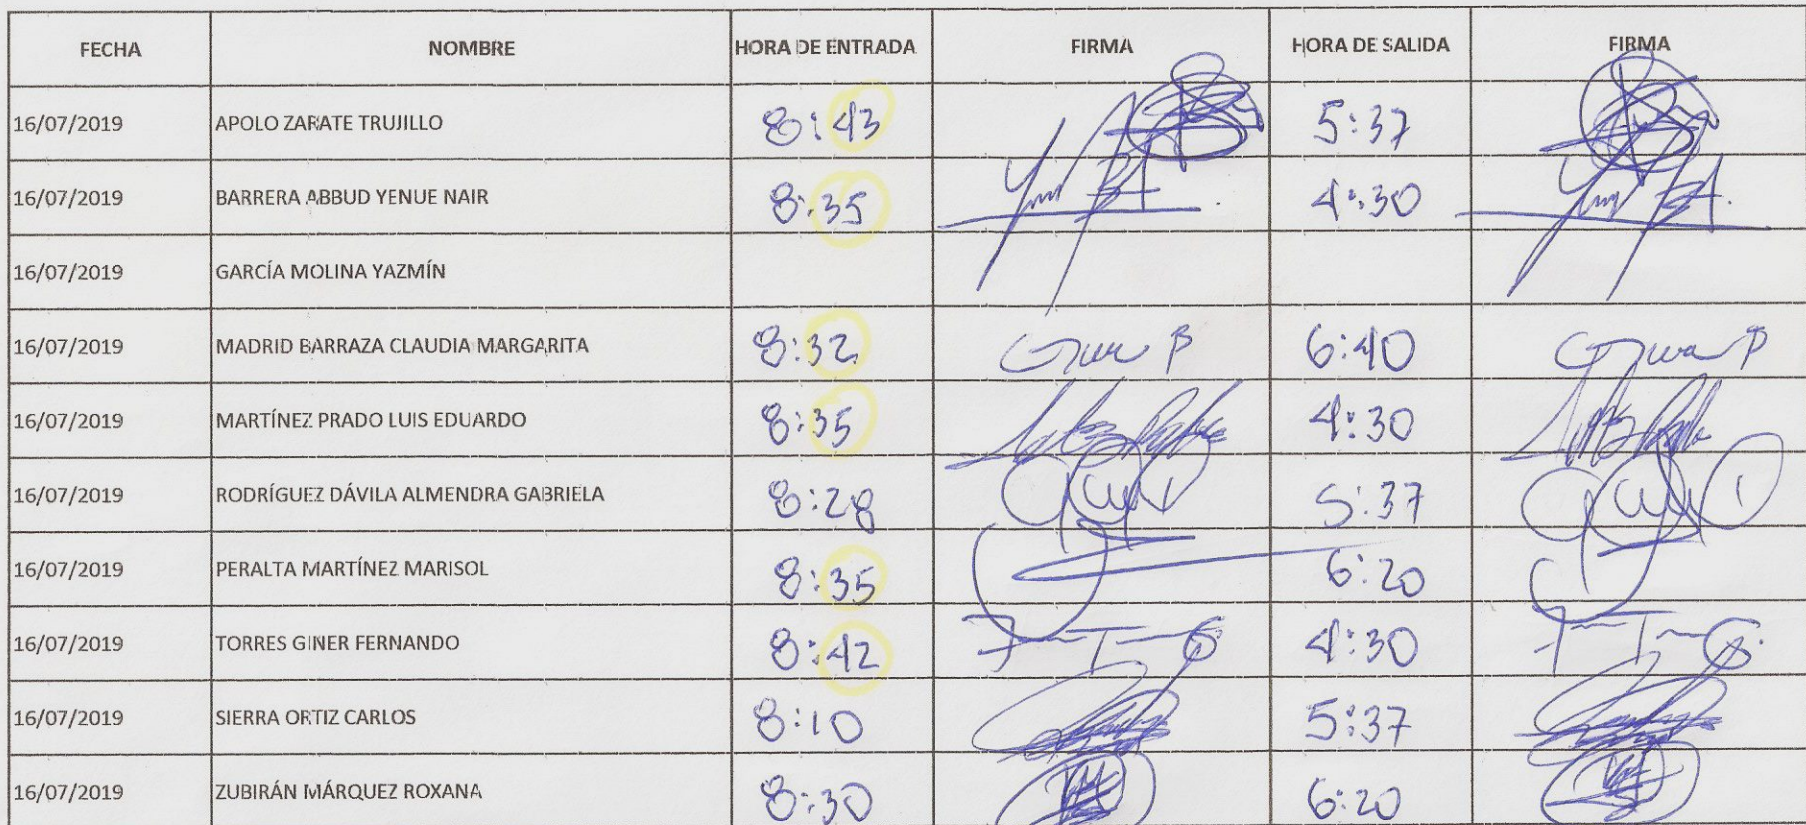 FECHA NOMBRE HORA DE ENTRADA FIRMA HORA DE SALIDA FIRMA
16/07/2019 APOLO ZARATE TRUJILLO 8:43 5:37
16/07/2019 BARRERA ABBUD YENUE NAIR 8:35 4:30
16/07/2019 GARCÍA MOLINA YAZMÍN
16/07/2019 MADRID BARRAZA CLAUDIA MARGARITA 8:32 6:40
16/07/2019 MARTÍNEZ PRADO LUIS EDUARDO 8:35 4:30
16/07/2019 RODRÍGUEZ DÁVILA ALMENDRA GABRIELA 8:28 5:37
16/07/2019 PERALTA MARTÍNEZ MARISOL 8:35 6:20
16/07/2019 TORRES GINER FERNANDO 8:42 4:30
16/07/2019 SIERRA ORTIZ CARLOS 8:10 5:37
16/07/2019 ZUBIRÁN MÁRQUEZ ROXANA 8:30 6:20